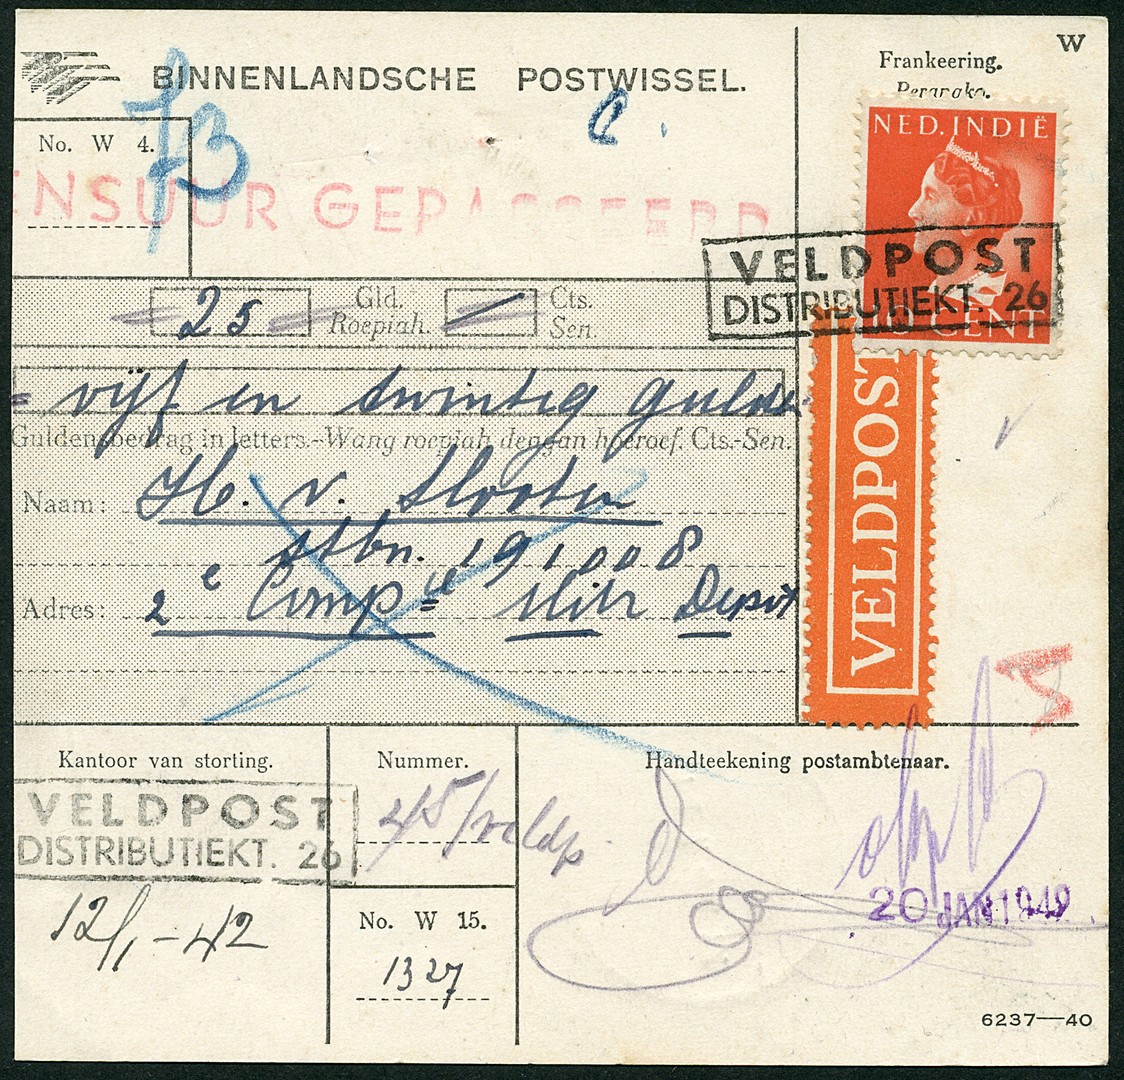 W
BINNENLANDSCHE POSTWISSEL.
Frankeering.
Perangko.
No. W 4.
73
ENSUUR GEPASSEERD
NED. INDIË
10 CENT
VELDPOST
DISTRIBUTIEKT. 26
25 Gld. Cts.
Roepiah. Sen.
= vijf en twintig gulden
Guldensbedrag in letters.-Wang roepiah dengan hoeroef. Cts.-Sen.
Naam: H. v. Slooten
stbn. 191008
Adres: 2e Compie Mitr Depot
VELDPOST
Kantoor van storting.
Nummer.
Handteekening postambtenaar.
VELDPOST
DISTRIBUTIEKT. 26
45/veldp
12/1-42
20 JAN 1942
No. W 15.
1327
6237—40